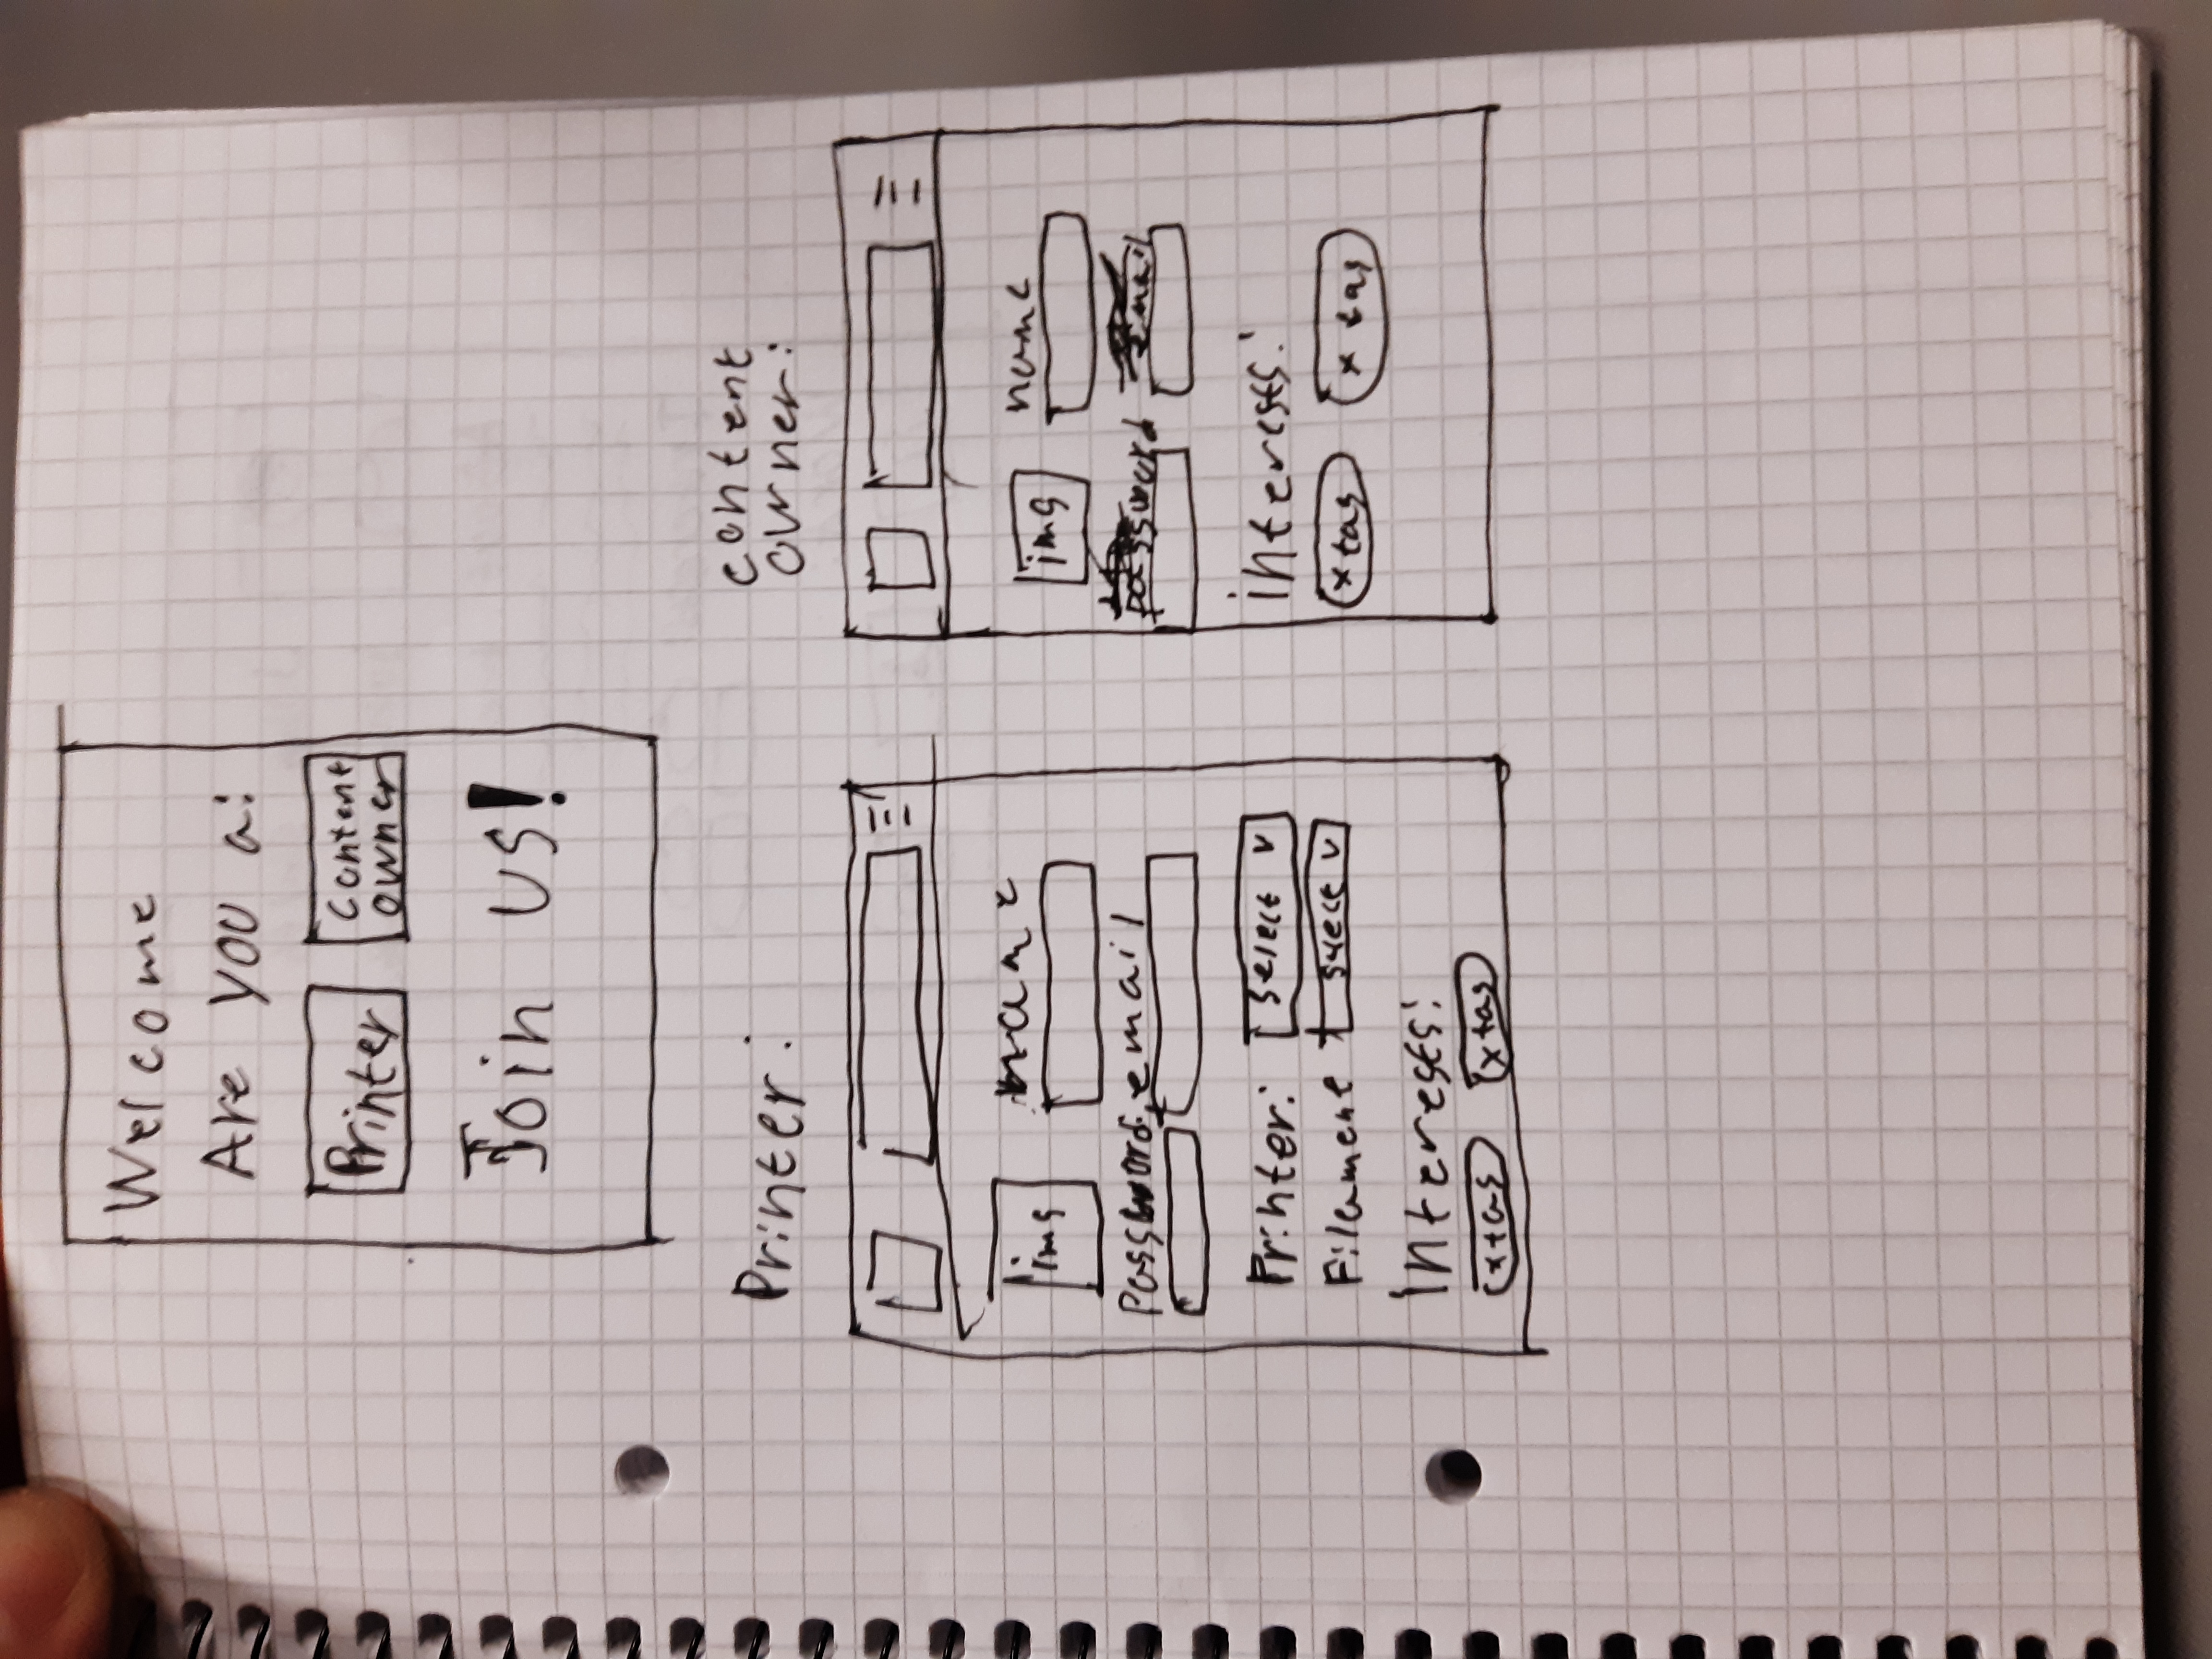 Welcome
Are you a:
Printer
content
owner
Join us!
Printer:
content
owner:
img
name
password
email
Printer: select v
Filament select v
Interests:
x tag x tag
img
name
password email
interests:
x tag x tag